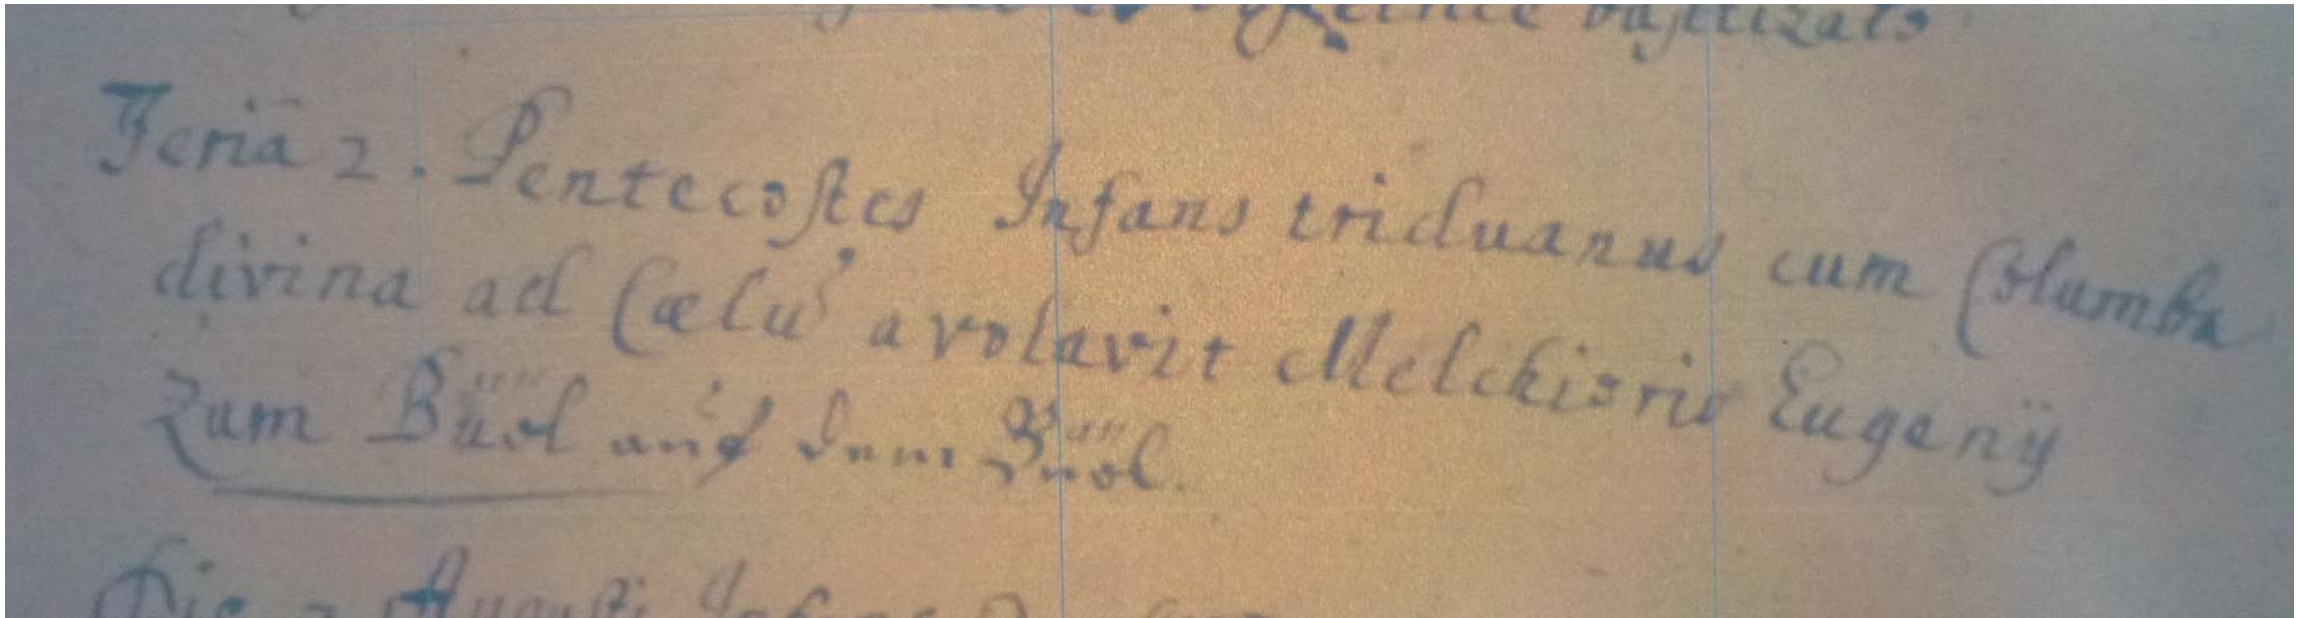 baptizats
Feriâ 2. Pentecostes Infans triduanus cum Columba
divina ad Cælu͂ avolavit Melchioris Eugenÿ
Zum Büol auf dem Büol.
Die Augusti Infans